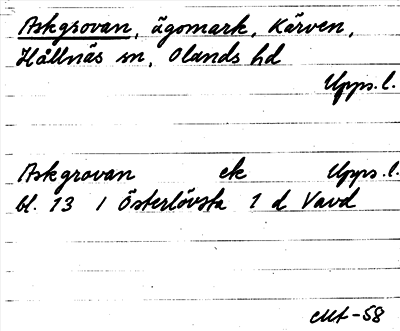 Askgrovan, ägomark, Kärven,
Hållnäs sn, Olands hd
Upps. l.
Askgrovan ek Upps. l.
bl. 13 I Österlövsta 1 d Vavd
-58